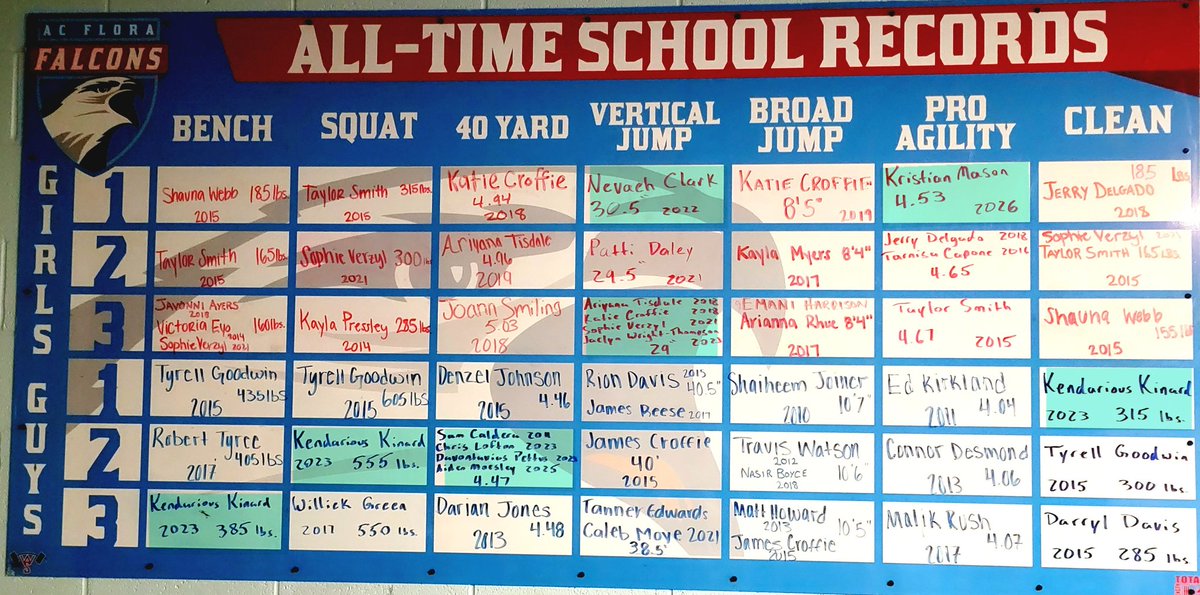 AC FLORA
FALCONS
ALL-TIME SCHOOL RECORDS
BENCH
SQUAT
40 YARD
VERTICAL
JUMP
BROAD
JUMP
PRO
AGILITY
CLEAN
GIRLS
1
Shauna Webb 185 lbs.
2015
Taylor Smith 315 lbs.
2015
Katie Croffie
4.94
2018
Nevaeh Clark
30.5" 2022
KATIE CROFFIE
8'5" 2019
Kristian Mason
4.53 2026
185 Lbs
JERRY DELGADO
2018
2
Taylor Smith 165 lbs.
2015
Sophie Verzyl 300 lbs
2021
Ariyana Tisdale
4.96
2019
Patti Daley
29.5" 2021
Kayla Myers 8'4"
2017
Jerry Delgado 2018
Tarnica Capone 2016
4.65
Sophie Verzyl 2021
TAYLOR SMITH 165 LBS
2015
3
JAVONNI AYERS
2018
Victoria Eyo 2014 160 lbs.
Sophie Verzyl 2021
Kayla Pressley 285 lbs.
2014
Joann Smiling
5.03
2018
Ariyana Tisdale 2018
Katie Croffie 2018
Sophie Verzyl 2021
Jaclyn Wright-Thompson
29" 2023
EMANI HARDISON
Arianna Rhue 8'4"
2017
Taylor Smith
4.67 2015
Shauna Webb
155 lbs
2015
GUYS
1
Tyrell Goodwin
435 lbs
2015
Tyrell Goodwin
2015 605 lbs
Denzel Johnson
2015 4.46
Rion Davis 2015
40.5"
James Reese 2017
Shaiheem Joiner
2010 10'7"
Ed Kirkland
2011 4.04
Kendarious Kinard
2023 315 lbs.
2
Robert Tyree
405 lbs
2017
Kendarious Kinard
2023 555 lbs.
Sam Caldera 2011
Chris Lofton 2023
Davontavius Pettus 2023
Aiden Moesley 2025
4.47
James Croffie
40'
2015
Travis Watson
2012
NASIR BOYCE 10'6"
2018
Connor Desmond
2013 4.06
Tyrell Goodwin
2015 300 lbs.
3
Kendarious Kinard
2023 385 lbs.
Willick Green
2017 550 lbs.
Darian Jones
2013 4.48
Tanner Edwards
Caleb Moye 2021
38.5'
Matt Howard
2013 10'5"
James Croffie
2015
Malik Rush
2017 4.07
Darryl Davis
2015 285 lbs.
TOTA